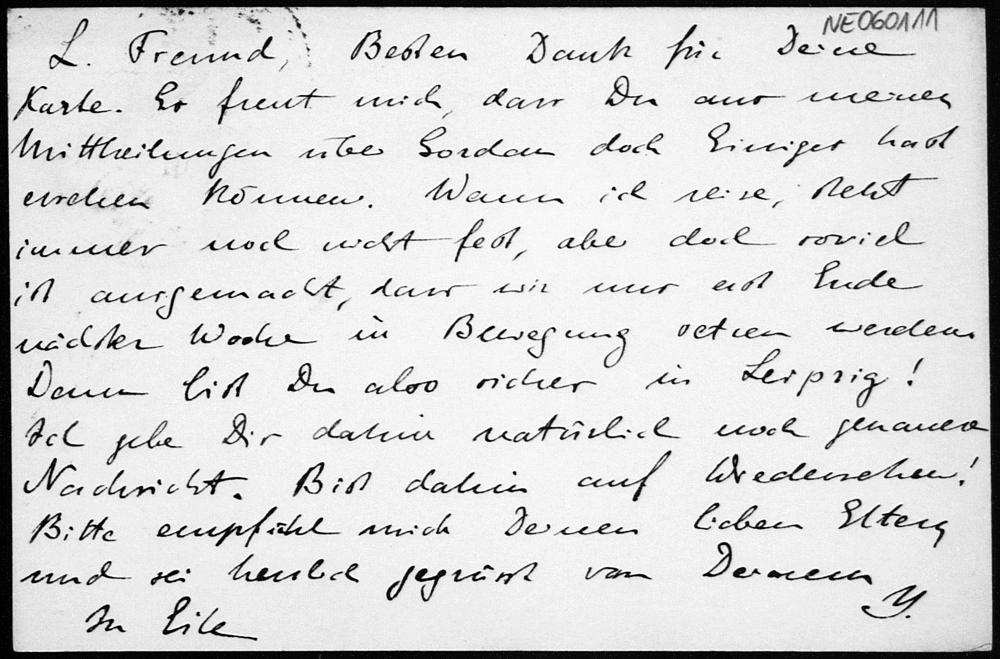 NE060111
L. Freund, Besten Dank für Deine
Karte. Es freut mich, dass Du aus meinen
Mittheilungen über Gordan doch Einiges hast
ersehen können. Wann ich reise, steht
immer noch nicht fest, aber doch soviel
ist ausgemacht, dass wir uns erst Ende
nächster Woche in Bewegung setzen werden.
Dann bist Du also sicher in Leipzig!
Ich gebe Dir dahin natürlich noch genauere
Nachricht. Bist dahin auf Wiedersehen!
Bitte empfiehl mich Deinen lieben Eltern
und sei herzlich gegrüsst von Deinem
In Eile
Y.